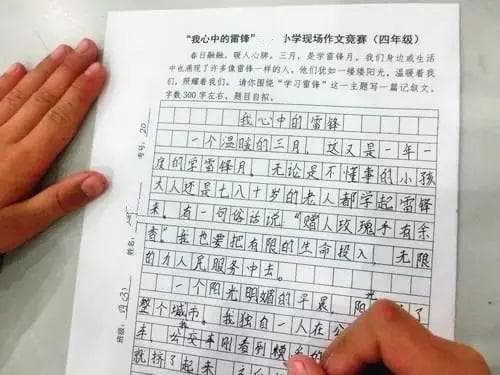 “我心中的雷锋” 小学现场作文竞赛（四年级）
春日融融，暖人心脾。三月，是学雷锋月。我们身边或生活
中也涌现了许多像雷锋一样的人。他们犹如一缕缕阳光，温暖着我
们，照耀着我们。 请你围绕“学习雷锋”这一主题写一篇记叙文。
字数 300 字左右，题目自拟。
我心中的雷锋
一个温暖的三月，这又是一年一
度的学雷锋月。无论是不懂事的小孩
大人还是七八十岁的老人都学起雷锋
来。有一句俗话说，“赠人玫瑰手有余
香。”我也要把有限的生命投入，无限
的为人民服务中去。
一个阳光明媚的早晨，阳光 了
整个城市。我独自一人在公
车，公交车刚看到
就挤了起来
考号：20
姓名：
班级：四(3)